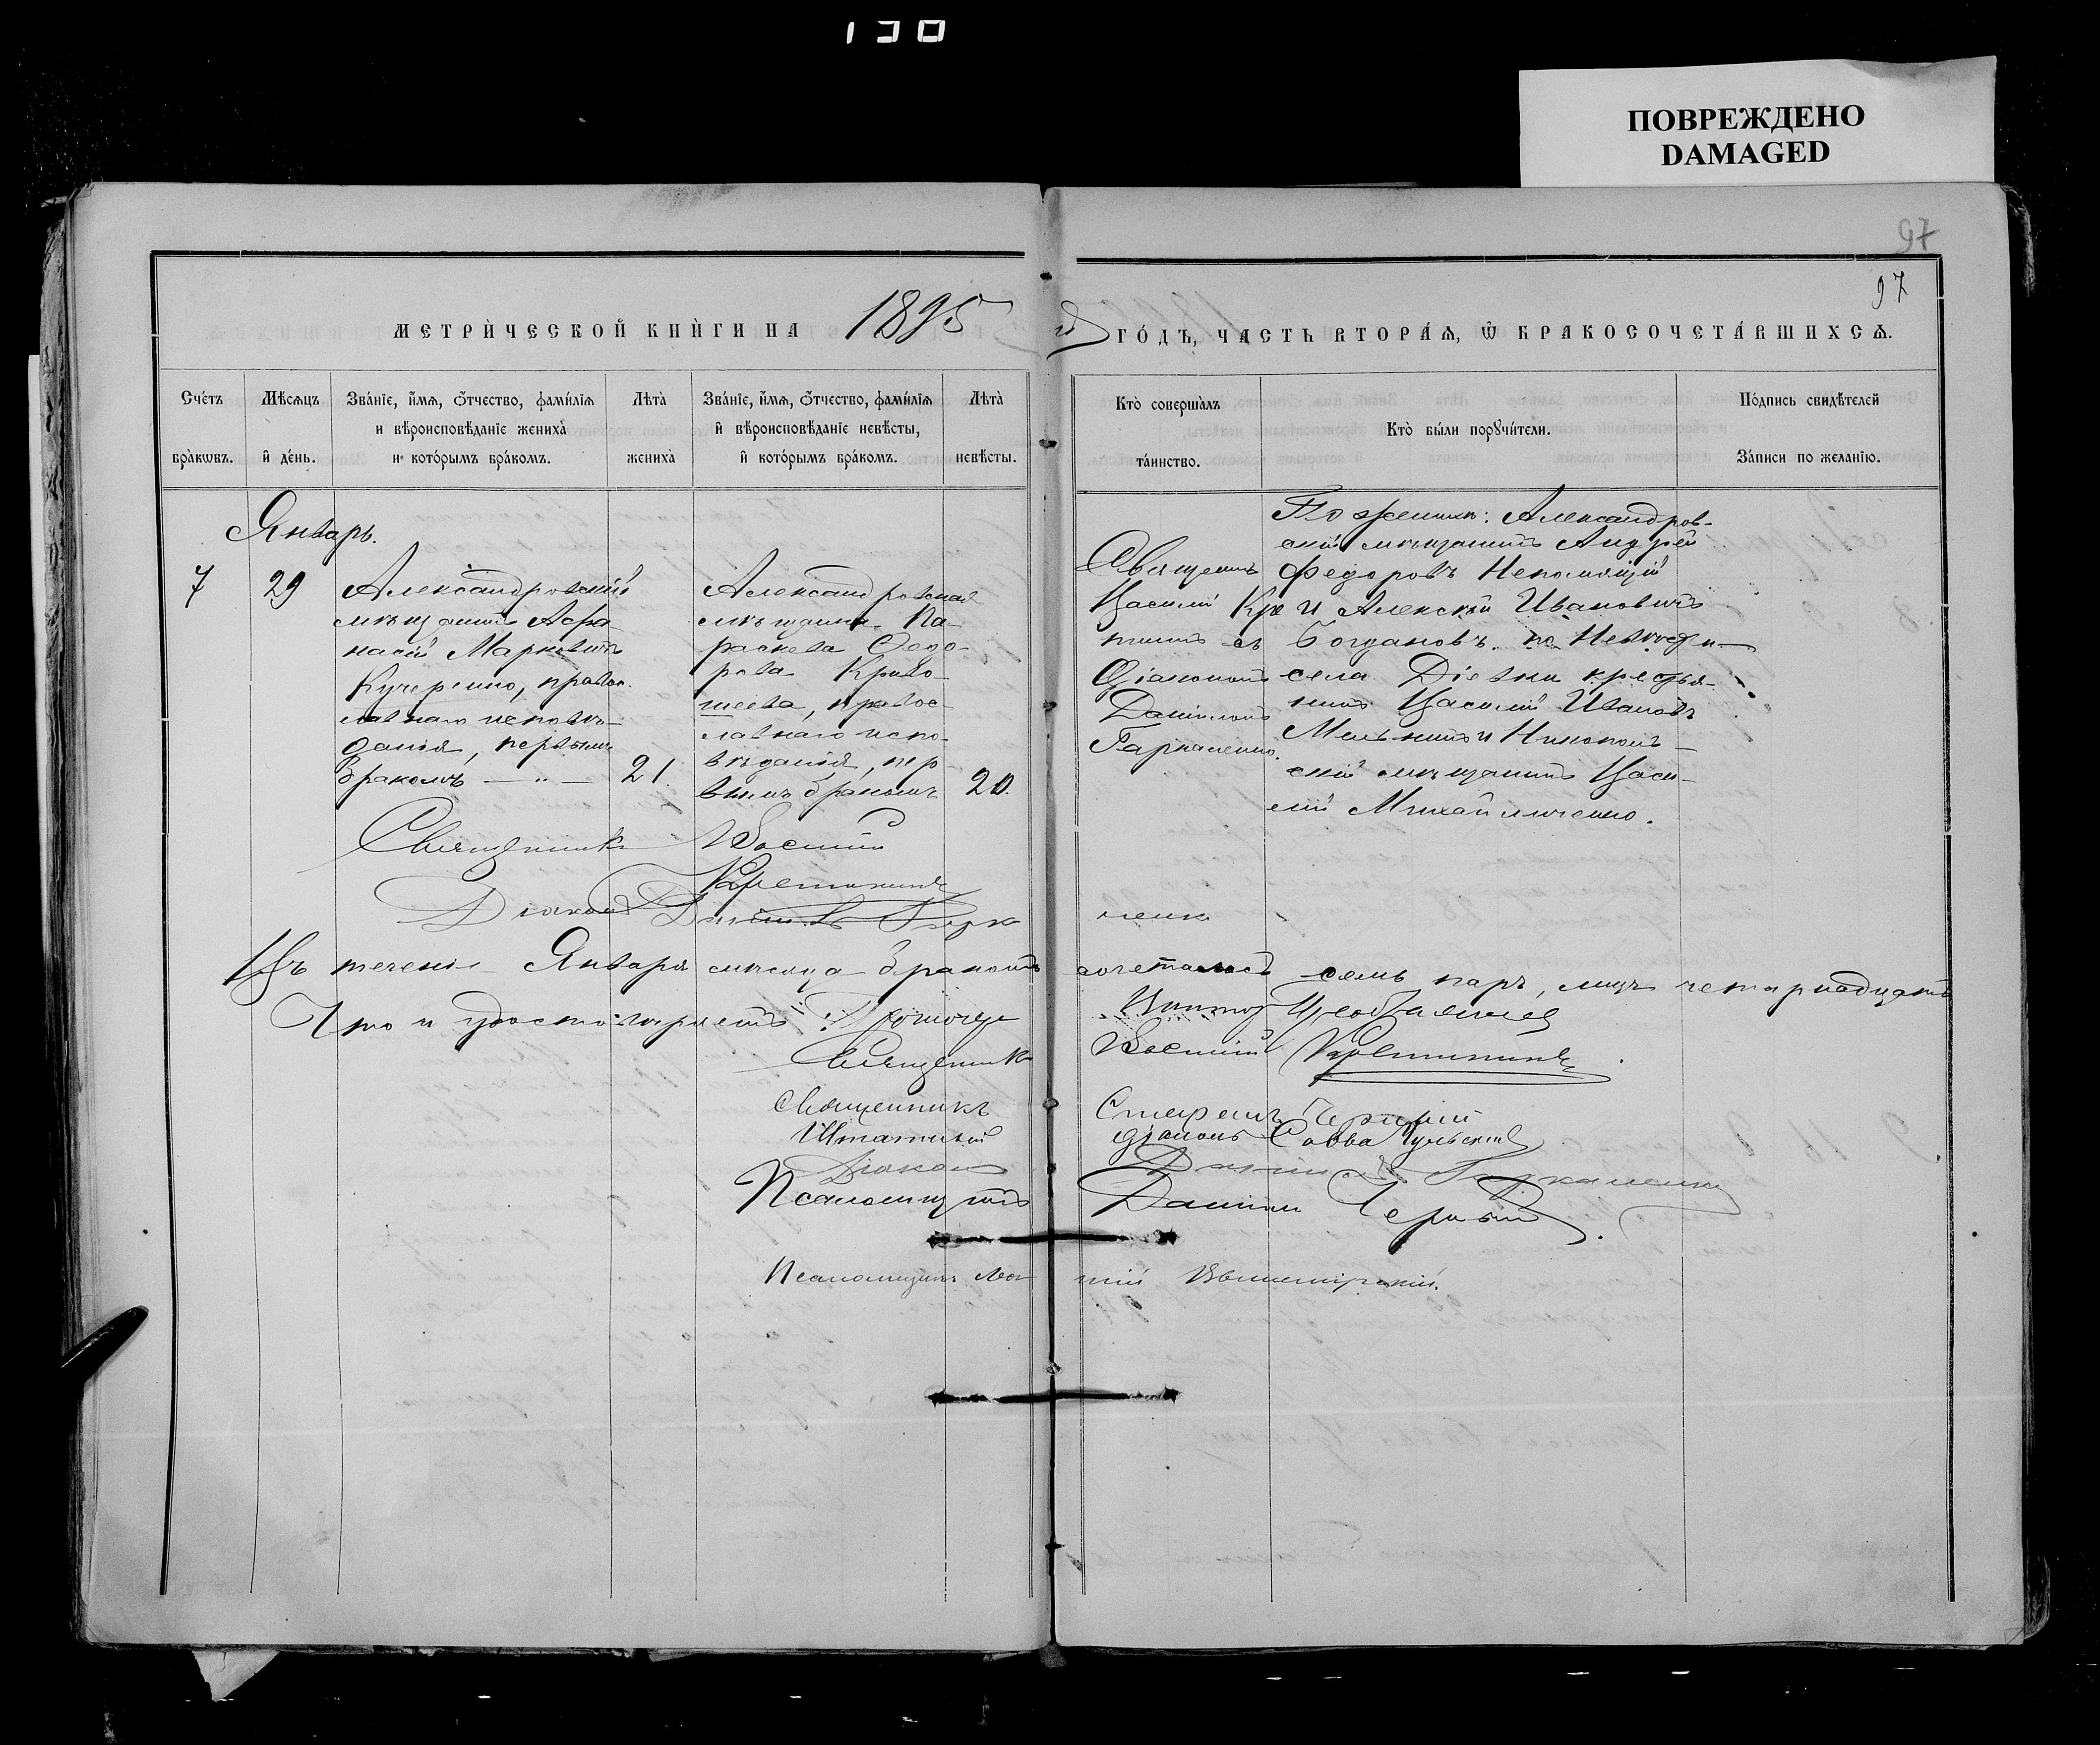 130
ПОВРЕЖДЕНО
DAMAGED
97
97
МЕТРИ́ЧЕСКОЙ КНИ́ГИ НА 1895 й ГО́ДЪ, ЧАСТЬ ВТОРА́Ѧ, Ѡ҆ БРАКОСОЧЕТА́ВШИХСѦ.
Сче́тъ
бра́кѡвъ.
Мѣ́сѧцъ
и҆ де́нь.
Зва́нїе, и҆́мѧ, ѻ҆́тчество, фами́лїѧ
и вѣроисповѣ́данїе жениха̀
и҆ кото́рымъ бра́комъ.
Лѣта̀
жениха̀
Зва́нїе, и҆́мѧ, ѻ҆́тчество, фами́лїѧ
и҆ вѣроисповѣ́данїе невѣ́сты,
и҆ кото́рымъ бра́комъ.
Лѣта̀
невѣ́сты.
Кто̀ соверша́лъ
та́инство.
Кто̀ бы́ли порꙋчи́тели.
По́дпись свидѣ́телей
За́писи по жела́нїю.
Январь.
7
29
Александровскій
мѣщанинъ Афа-
насій Марковичъ
Кучеренко, правос-
лавнаго исповѣ-
данія, первымъ
бракомъ — „ —
21.
Александровская
мѣщанка Па-
раскева Ѳедо-
рова Криво-
шеева, правос-
лавнаго испо-
вѣданія, пер-
вымъ бракомъ
20.
Священникъ
Василій Кре
тининъ съ
Діакономъ
Даніиломъ
Гаркаленко.
По женихѣ: Александров-
скій мѣщанинъ Андрей
Федоровъ Непомящій
и Алексѣй Ивановичъ
Богдановъ. по Невѣстѣ
села Діевки крестья-
нинъ Василій Ивановъ
Мельникъ и Никополь-
скій мѣщанинъ Васи-
лій Михайличенко.
Священникъ Василій
Кретининъ
Діаконъ Даніилъ Гаркаленко
Въ теченіе Января мѣсяца бракомъ сочеталось семь паръ, лицъ четырнадцать
Что и удостовѣряетъ:
Священникъ Василій Кретининъ
Священникъ
Штатный діаконъ Савва
Діаконъ Даніилъ Гаркаленко
Псаломщикъ Даніилъ Черный
Псаломщикъ